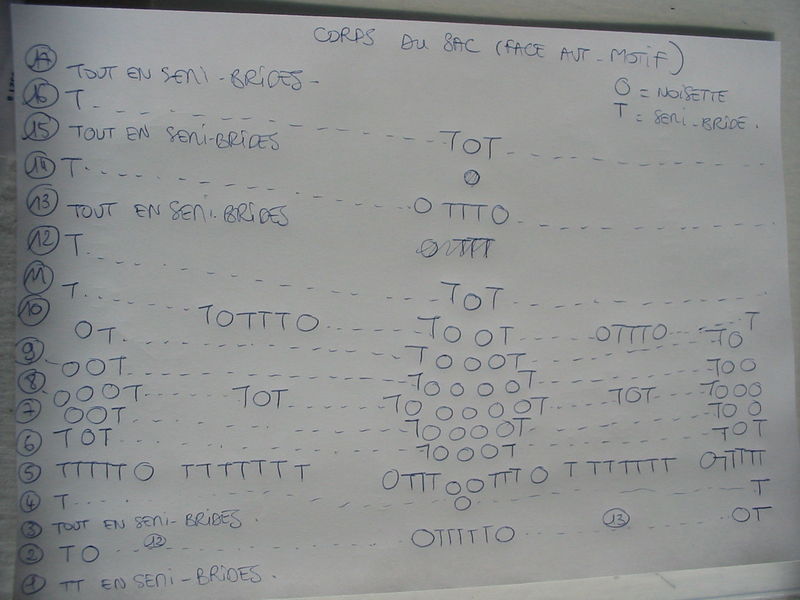 CORPS DU SAC (FACE AVT - MOTIF)
O = NOISETTE
T = SEMI-BRIDE.
17 TOUT EN SEMI-BRIDES -
16 T TOT
15 TOUT EN SEMI-BRIDES
14 T O TTT O
13 TOUT EN SEMI-BRIDES
12 T TOT
11 T TO OT T
10 OT TOTTTO TOOOT OTTTO TO
9 OOT TOOOOT TOO
8 OOOT TOT TOOOOOT TOT TOOO
7 OOT TOOOOT TOO
6 TOT TOOOT TOT
5 TTTTTO TTTTTTT OTTTOOTTTO TTTTTTT OTTTT
4 T O T
3 TOUT EN SEMI-BRIDES.
2 TO 13 OTTTTTO 13 OT
1 TT EN SEMI-BRIDES.